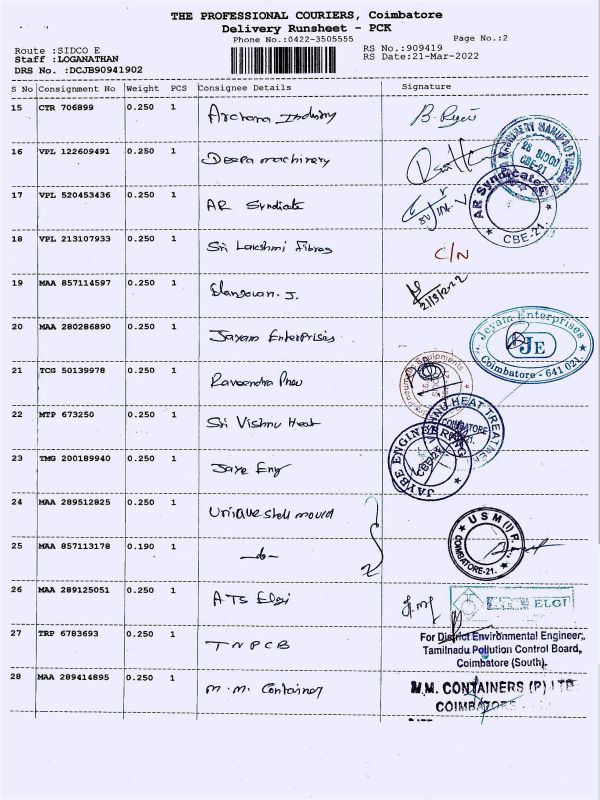 THE PROFESSIONAL COURIERS, Coimbatore
Delivery Runsheet - PCK
Phone No.:0422-3505555 Page No.:2
Route :SIDCO E RS No.:909419
Staff :LOGANATHAN RS Date:21-Mar-2022
DRS No. :DCJB90941902
S No Consignment No Weight PCS Consignee Details Signature
15 CTR 706899 0.250 1 Archana Industry
16 VPL 122609491 0.250 1 Deepa machinery
17 VPL 520453436 0.250 1 AR Syndicate
AR Syndicates
CBE-21.
18 VPL 213107933 0.250 1 Sri Lakshmi Fibres C/N
19 MAA 857114597 0.250 1 Elangovan. J.
20 MAA 280286890 0.250 1 Jayam Enterprises
Jeyam Enterprises
JE
Coimbatore - 641 021.
21 TCG 50139978 0.250 1 Raveendra Pneu
22 MTP 673250 0.250 1 Sri Vishnu Heat
23 TMG 200189940 0.250 1 Jaye Eng
24 MAA 289512825 0.250 1 Unique shell mould
USM (I) P.L.
COIMBATORE-21.
25 MAA 857113178 0.190 1
26 MAA 289125051 0.250 1 ATS Elgi
ELGI
27 TRP 6783693 0.250 1 TNPCB
For District Environmental Engineer,
Tamilnadu Pollution Control Board,
Coimbatore (South).
28 MAA 289414895 0.250 1 M.M. Container
M.M. CONTAINERS (P) LTD